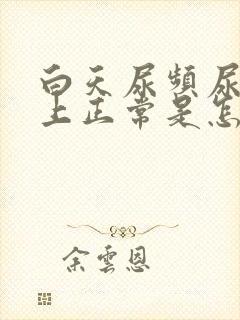 白天尿频尿
上正常是怎
余雲恩